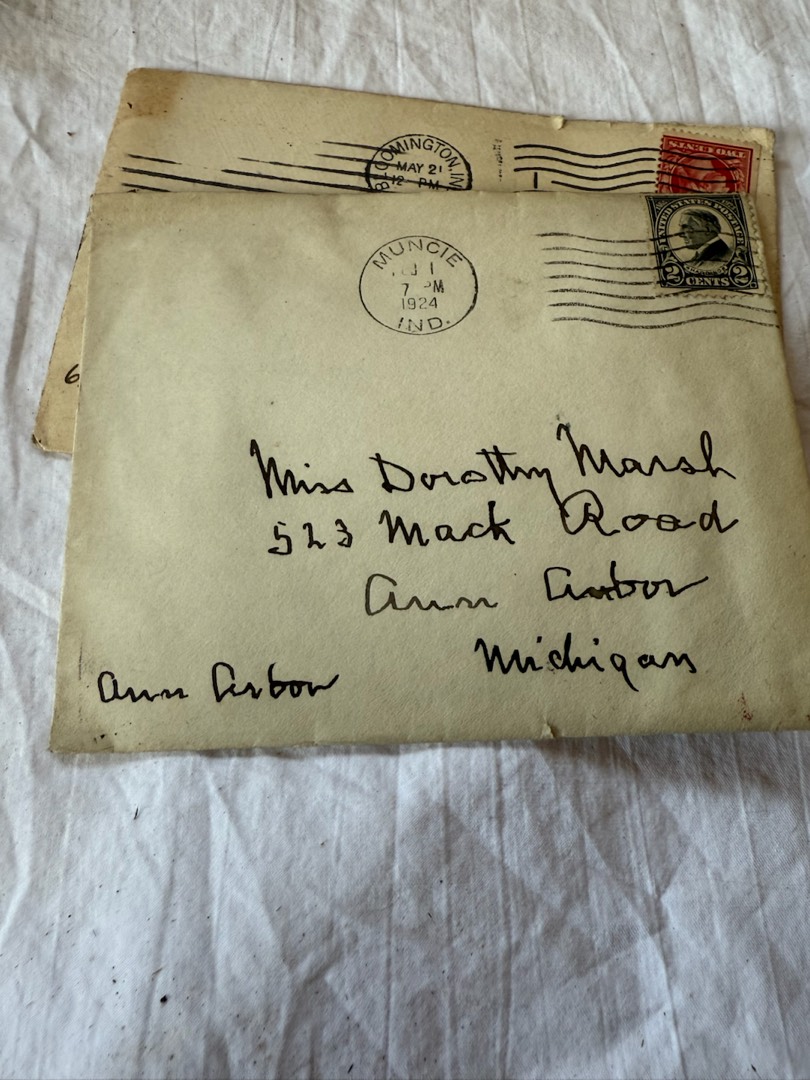 BLOOMINGTON, IN
MAY 21
12 PM
MUNCIE
1
7 PM
1924
IND.
UNITED STATES POSTAGE
2 CENTS 2
6
Miss Dorothy Marsh
523 Mack Road
Ann Arbor
Michigan
Ann Arbor